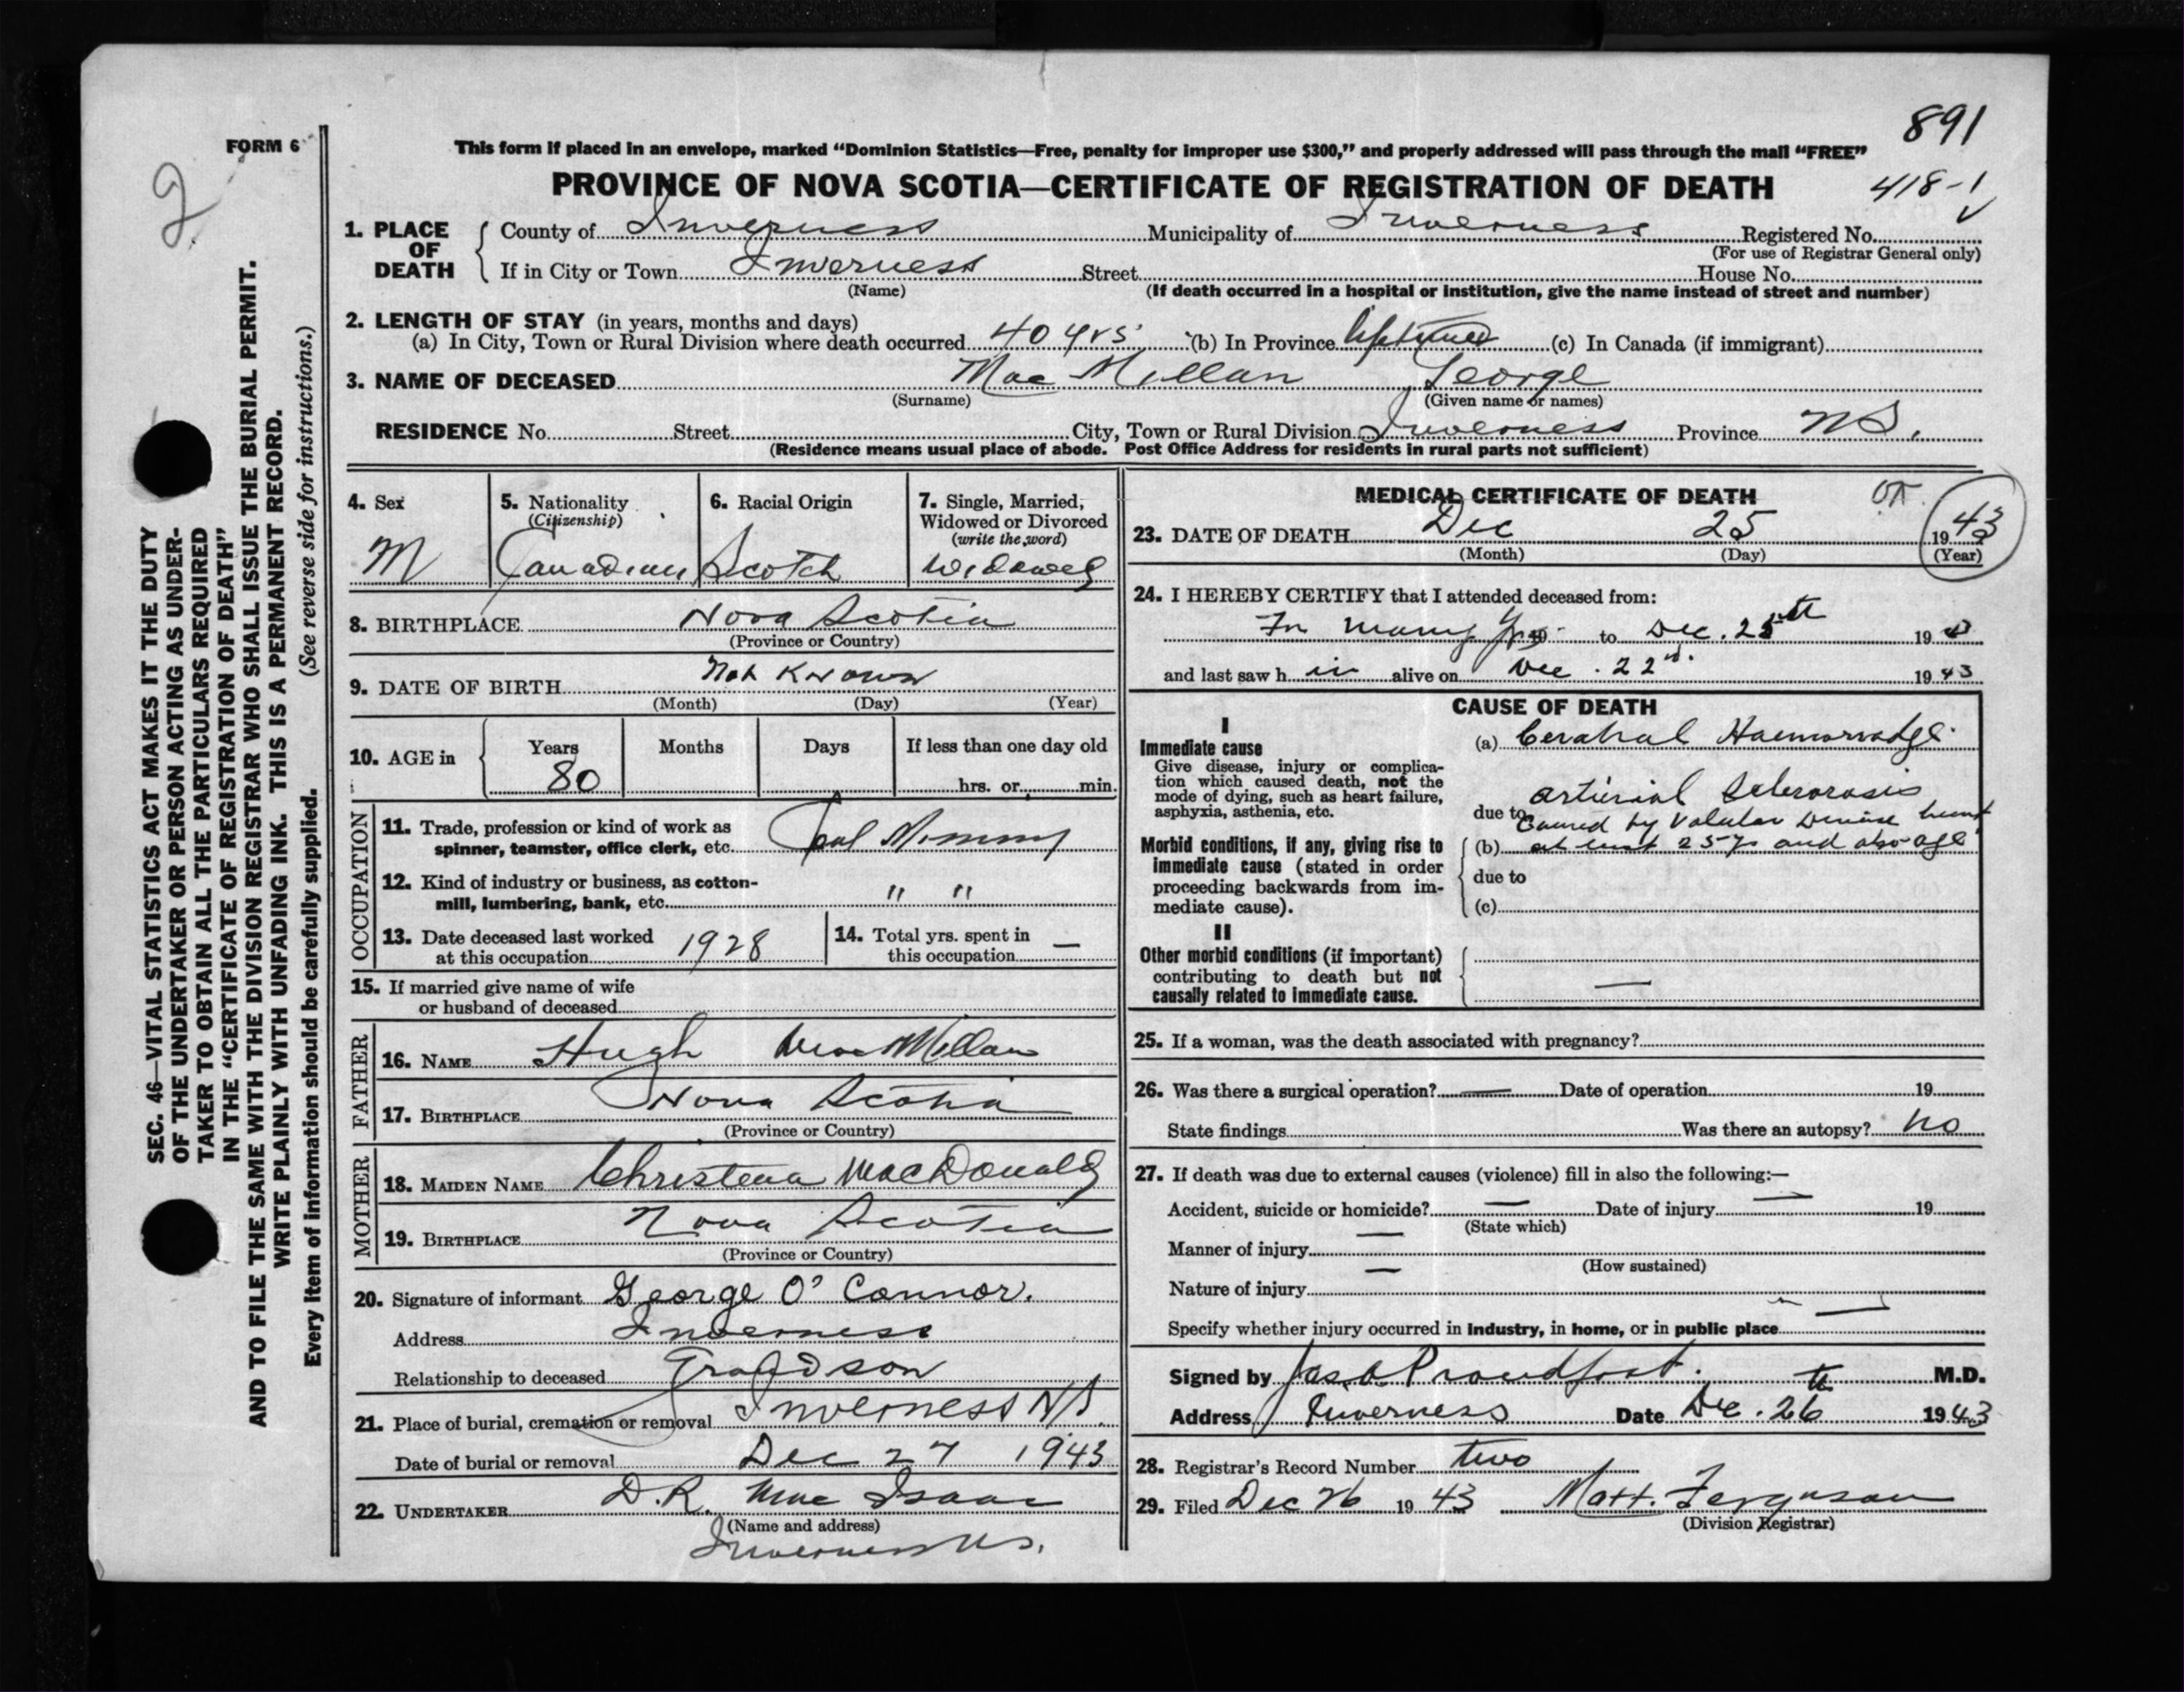 891
FORM 6
2
This form if placed in an envelope, marked "Dominion Statistics—Free, penalty for improper use $300," and properly addressed will pass through the mail "FREE"
PROVINCE OF NOVA SCOTIA—CERTIFICATE OF REGISTRATION OF DEATH
418-1
1. PLACE OF DEATH
County of Inverness Municipality of Inverness Registered No.
(For use of Registrar General only)
If in City or Town Inverness Street House No.
(Name) (If death occurred in a hospital or institution, give the name instead of street and number)
2. LENGTH OF STAY (in years, months and days)
(a) In City, Town or Rural Division where death occurred 40 yrs (b) In Province lifetime (c) In Canada (if immigrant)
3. NAME OF DECEASED Mac Millan George
(Surname) (Given name or names)
RESIDENCE No. Street City, Town or Rural Division Inverness Province N S.
(Residence means usual place of abode. Post Office Address for residents in rural parts not sufficient)
SEC. 46—VITAL STATISTICS ACT MAKES IT THE DUTY
OF THE UNDERTAKER OR PERSON ACTING AS UNDER-
TAKER TO OBTAIN ALL THE PARTICULARS REQUIRED
IN THE "CERTIFICATE OF REGISTRATION OF DEATH"
AND TO FILE THE SAME WITH THE DIVISION REGISTRAR WHO SHALL ISSUE THE BURIAL PERMIT.
WRITE PLAINLY WITH UNFADING INK. THIS IS A PERMANENT RECORD.
Every item of information should be carefully supplied. (See reverse side for instructions.)
4. Sex
M
5. Nationality
(Citizenship)
Canadian
6. Racial Origin
Scotch
7. Single, Married,
Widowed or Divorced
(write the word)
Widowed
8. BIRTHPLACE Nova Scotia
(Province or Country)
9. DATE OF BIRTH Not Known
(Month) (Day) (Year)
10. AGE in Years Months Days If less than one day old
80 hrs. or min.
OCCUPATION
11. Trade, profession or kind of work as
spinner, teamster, office clerk, etc. Coal Mining
12. Kind of industry or business, as cotton-
mill, lumbering, bank, etc. " "
13. Date deceased last worked
at this occupation 1928
14. Total yrs. spent in
this occupation —
15. If married give name of wife
or husband of deceased
FATHER
16. NAME Hugh MacMillan
17. BIRTHPLACE Nova Scotia
(Province or Country)
MOTHER
18. MAIDEN NAME Christena MacDonald
19. BIRTHPLACE Nova Scotia
(Province or Country)
20. Signature of informant George O'Connor.
Address Inverness
Relationship to deceased Grandson
21. Place of burial, cremation or removal Inverness NS.
Date of burial or removal Dec 27 1943
22. UNDERTAKER D.R. Mac Isaac
(Name and address)
Inverness NS.
MEDICAL CERTIFICATE OF DEATH
23. DATE OF DEATH Dec 25 1943
(Month) (Day) (Year)
24. I HEREBY CERTIFY that I attended deceased from:
For many yrs 19 to Dec. 25th 19
and last saw h im alive on Dec. 22nd. 1943
CAUSE OF DEATH
I
Immediate cause
Give disease, injury or complica-
tion which caused death, not the
mode of dying, such as heart failure,
asphyxia, asthenia, etc.
(a) Cerabral Haemorradge.
arterial Sclerorosis
due to Caused by Valular Disease heart
Morbid conditions, if any, giving rise to
immediate cause (stated in order
proceeding backwards from im-
mediate cause).
(b) at least 25 yrs and also age
due to
(c)
II
Other morbid conditions (if important)
contributing to death but not
causally related to immediate cause.
—
25. If a woman, was the death associated with pregnancy?
26. Was there a surgical operation? — Date of operation 19
State findings Was there an autopsy? No
27. If death was due to external causes (violence) fill in also the following:—
Accident, suicide or homicide? — Date of injury — 19
(State which)
Manner of injury —
(How sustained)
Nature of injury —
Specify whether injury occurred in industry, in home, or in public place —
Signed by Jas. A. Proudfoot. M.D.
Address Inverness Date Dec. 26th 1943
28. Registrar's Record Number two
29. Filed Dec 26 1943 Matt. Ferguson
(Division Registrar)